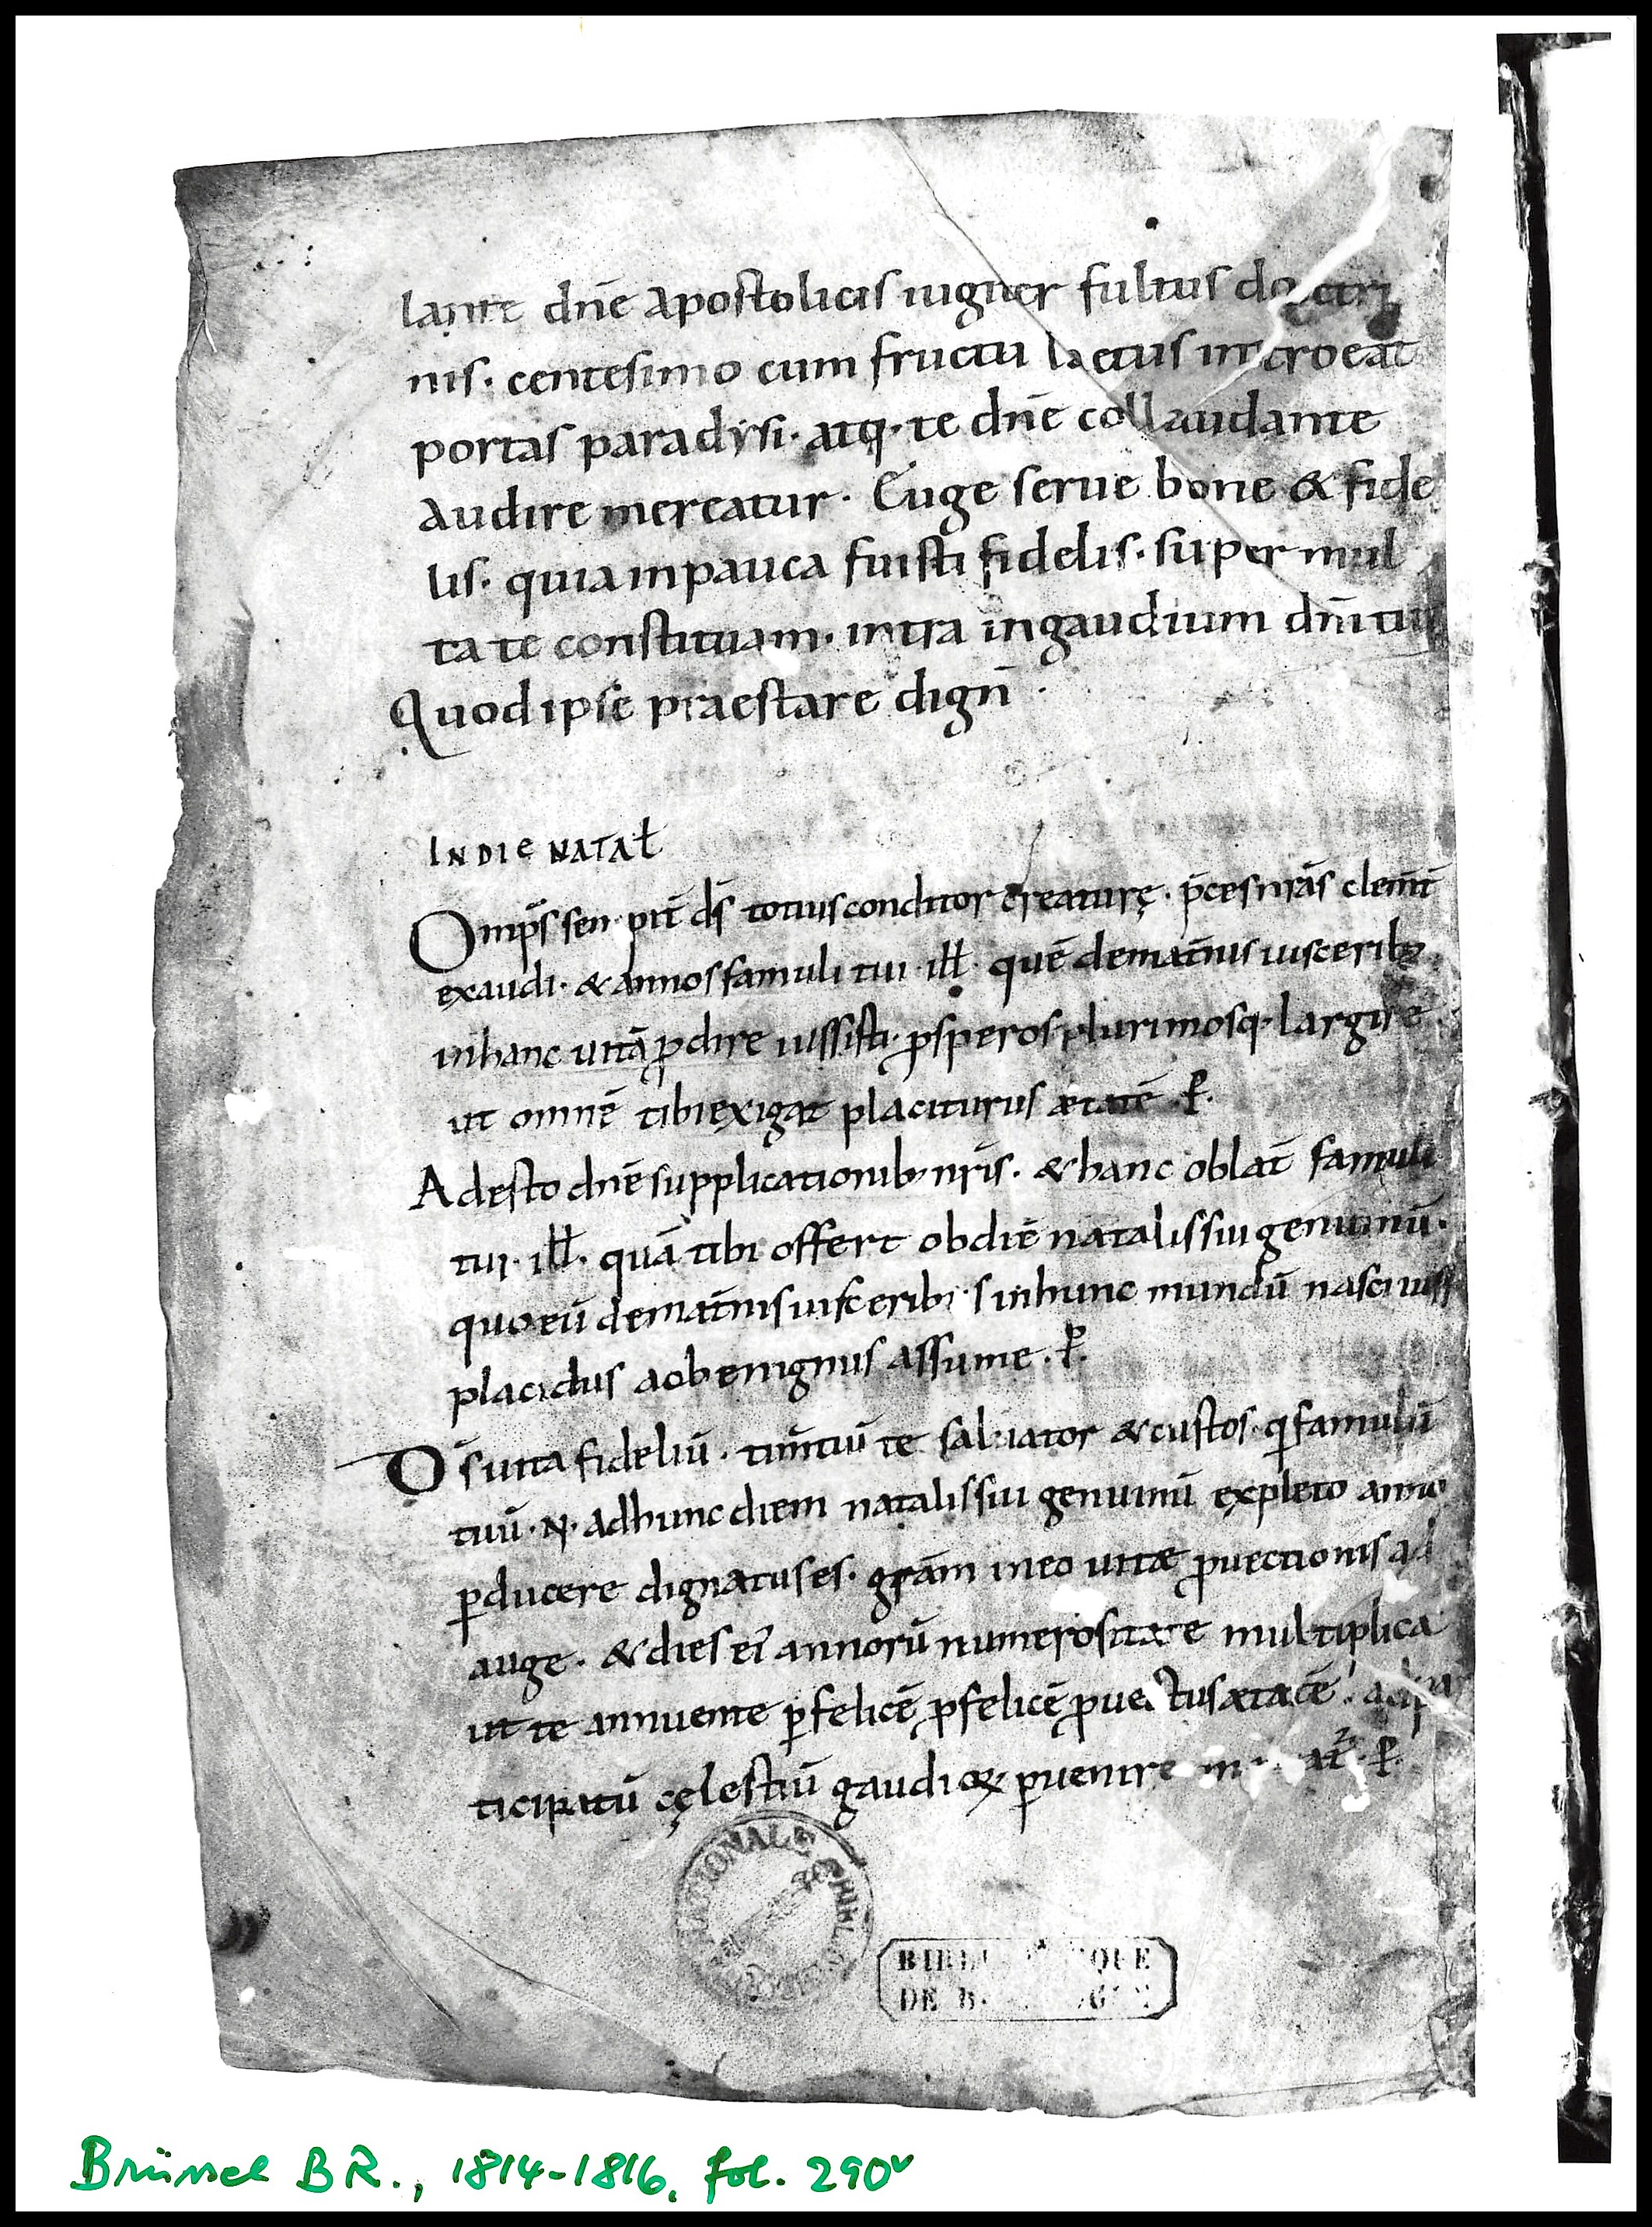 lante dn̄e apostolicis iugiter fultus doctri
nis· centesimo cum fructu laetus introeat
portas paradysi· atq· te dn̄e collaudante
audire mereatur· Euge serue bone & fide
lis· quia inpauca fuisti fidelis· super mul
ta te constituam· intra ingaudium dn̄i tui
Quod ipse praestare dign̄
INDIE NATAŁ
Omp̄s sen· pit̄ ds̄ totius conditor creaturę· p̄ces nrās clem̄t
exaudi· & annos famuli tui· ill̄· quē demat̄nis uisceribꝫ
inhanc uitā ꝓdire iussisti· ꝓsperos plurimosq· largire
ut omnē tibi exigat placiturus ætatē ·P·
Adesto dn̄e supplicationib; nr̄is· & hanc oblat̄ famuli
tui· ill̄· quā tibi offert obdiē natalis sui genuinū·
quo eū demat̄nis uisceribꝫ inhunc mundū nasci iuss
placidus ac benignus assume· P·
Ds̄ uita fideliū· tim̄tiū te saluator & custos· qi famulū
tuū· N· adhunc diem natalis sui genuinū expleto anno
ꝑducere dignatus es· gr̄am ineo uitæ ꝓuectionis ad
auge· & dies ei' annorū numerositate multiplica
ut te annuente ꝑ felicē ꝓfelicē ꝓuectus ætatē
ticipatū cęlestiū gaudioꝝ ꝑuenire P·
BIBLIOTHEQUE
DE BOURGOGNE
Brüssel BR., 1814-1816, fol. 290v